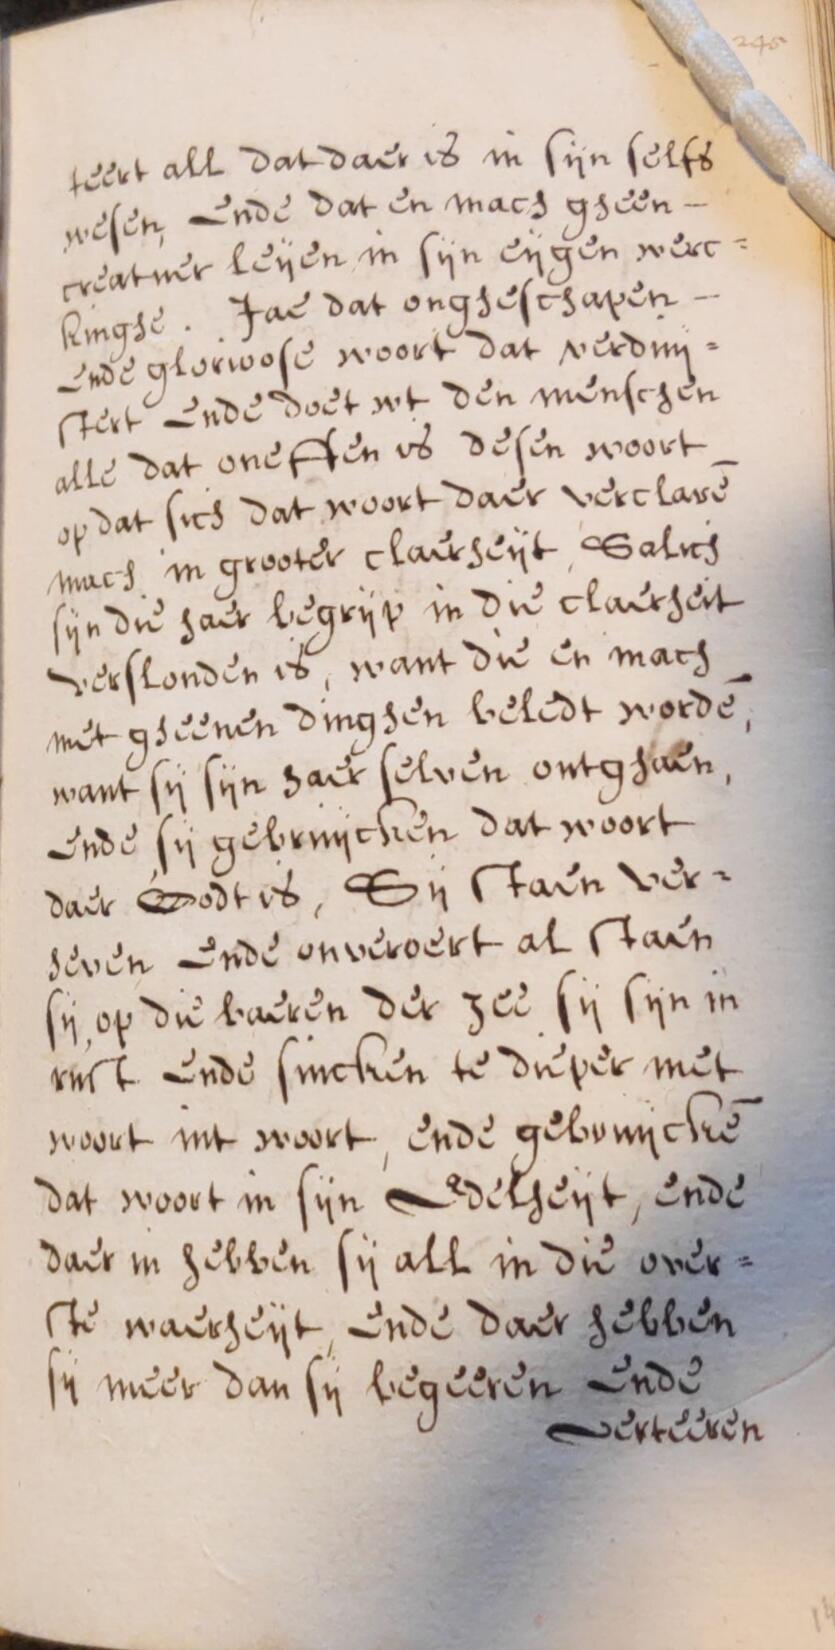 245
teert all dat daer is in sijn selfs
wesen, Ende dat en mach gheen –
creatuer leijen in sijn eijgen werc =
kinghe. Jae dat ongheschapen –
Ende glorioose woort dat verduij =
stert Ende doet wt den menschen
alle dat oneffen is desen woort
op dat sich dat woort daer verclarē
mach in grooter claerheijt, Salich
sijn die haer begrijp in die claerheit
verslonden is, want die en mach
met gheenen dinghen beledt wordē,
want sij sijn haer selven ontghaen,
Ende sij gebruijcken dat woort
daer Godt is, Sij staen ver =
heven Ende onveroert al staen
sij, op die baeren der zee sij sijn in
rust Ende sincken te dieper met
woort int woort, ende gebruijckē
dat woort in sijn Edelheijt, ende
daer in hebben sij all in die over =
ste waerheijt, Ende daer hebben
sij meer dan sij begeeren Ende
Verteeren